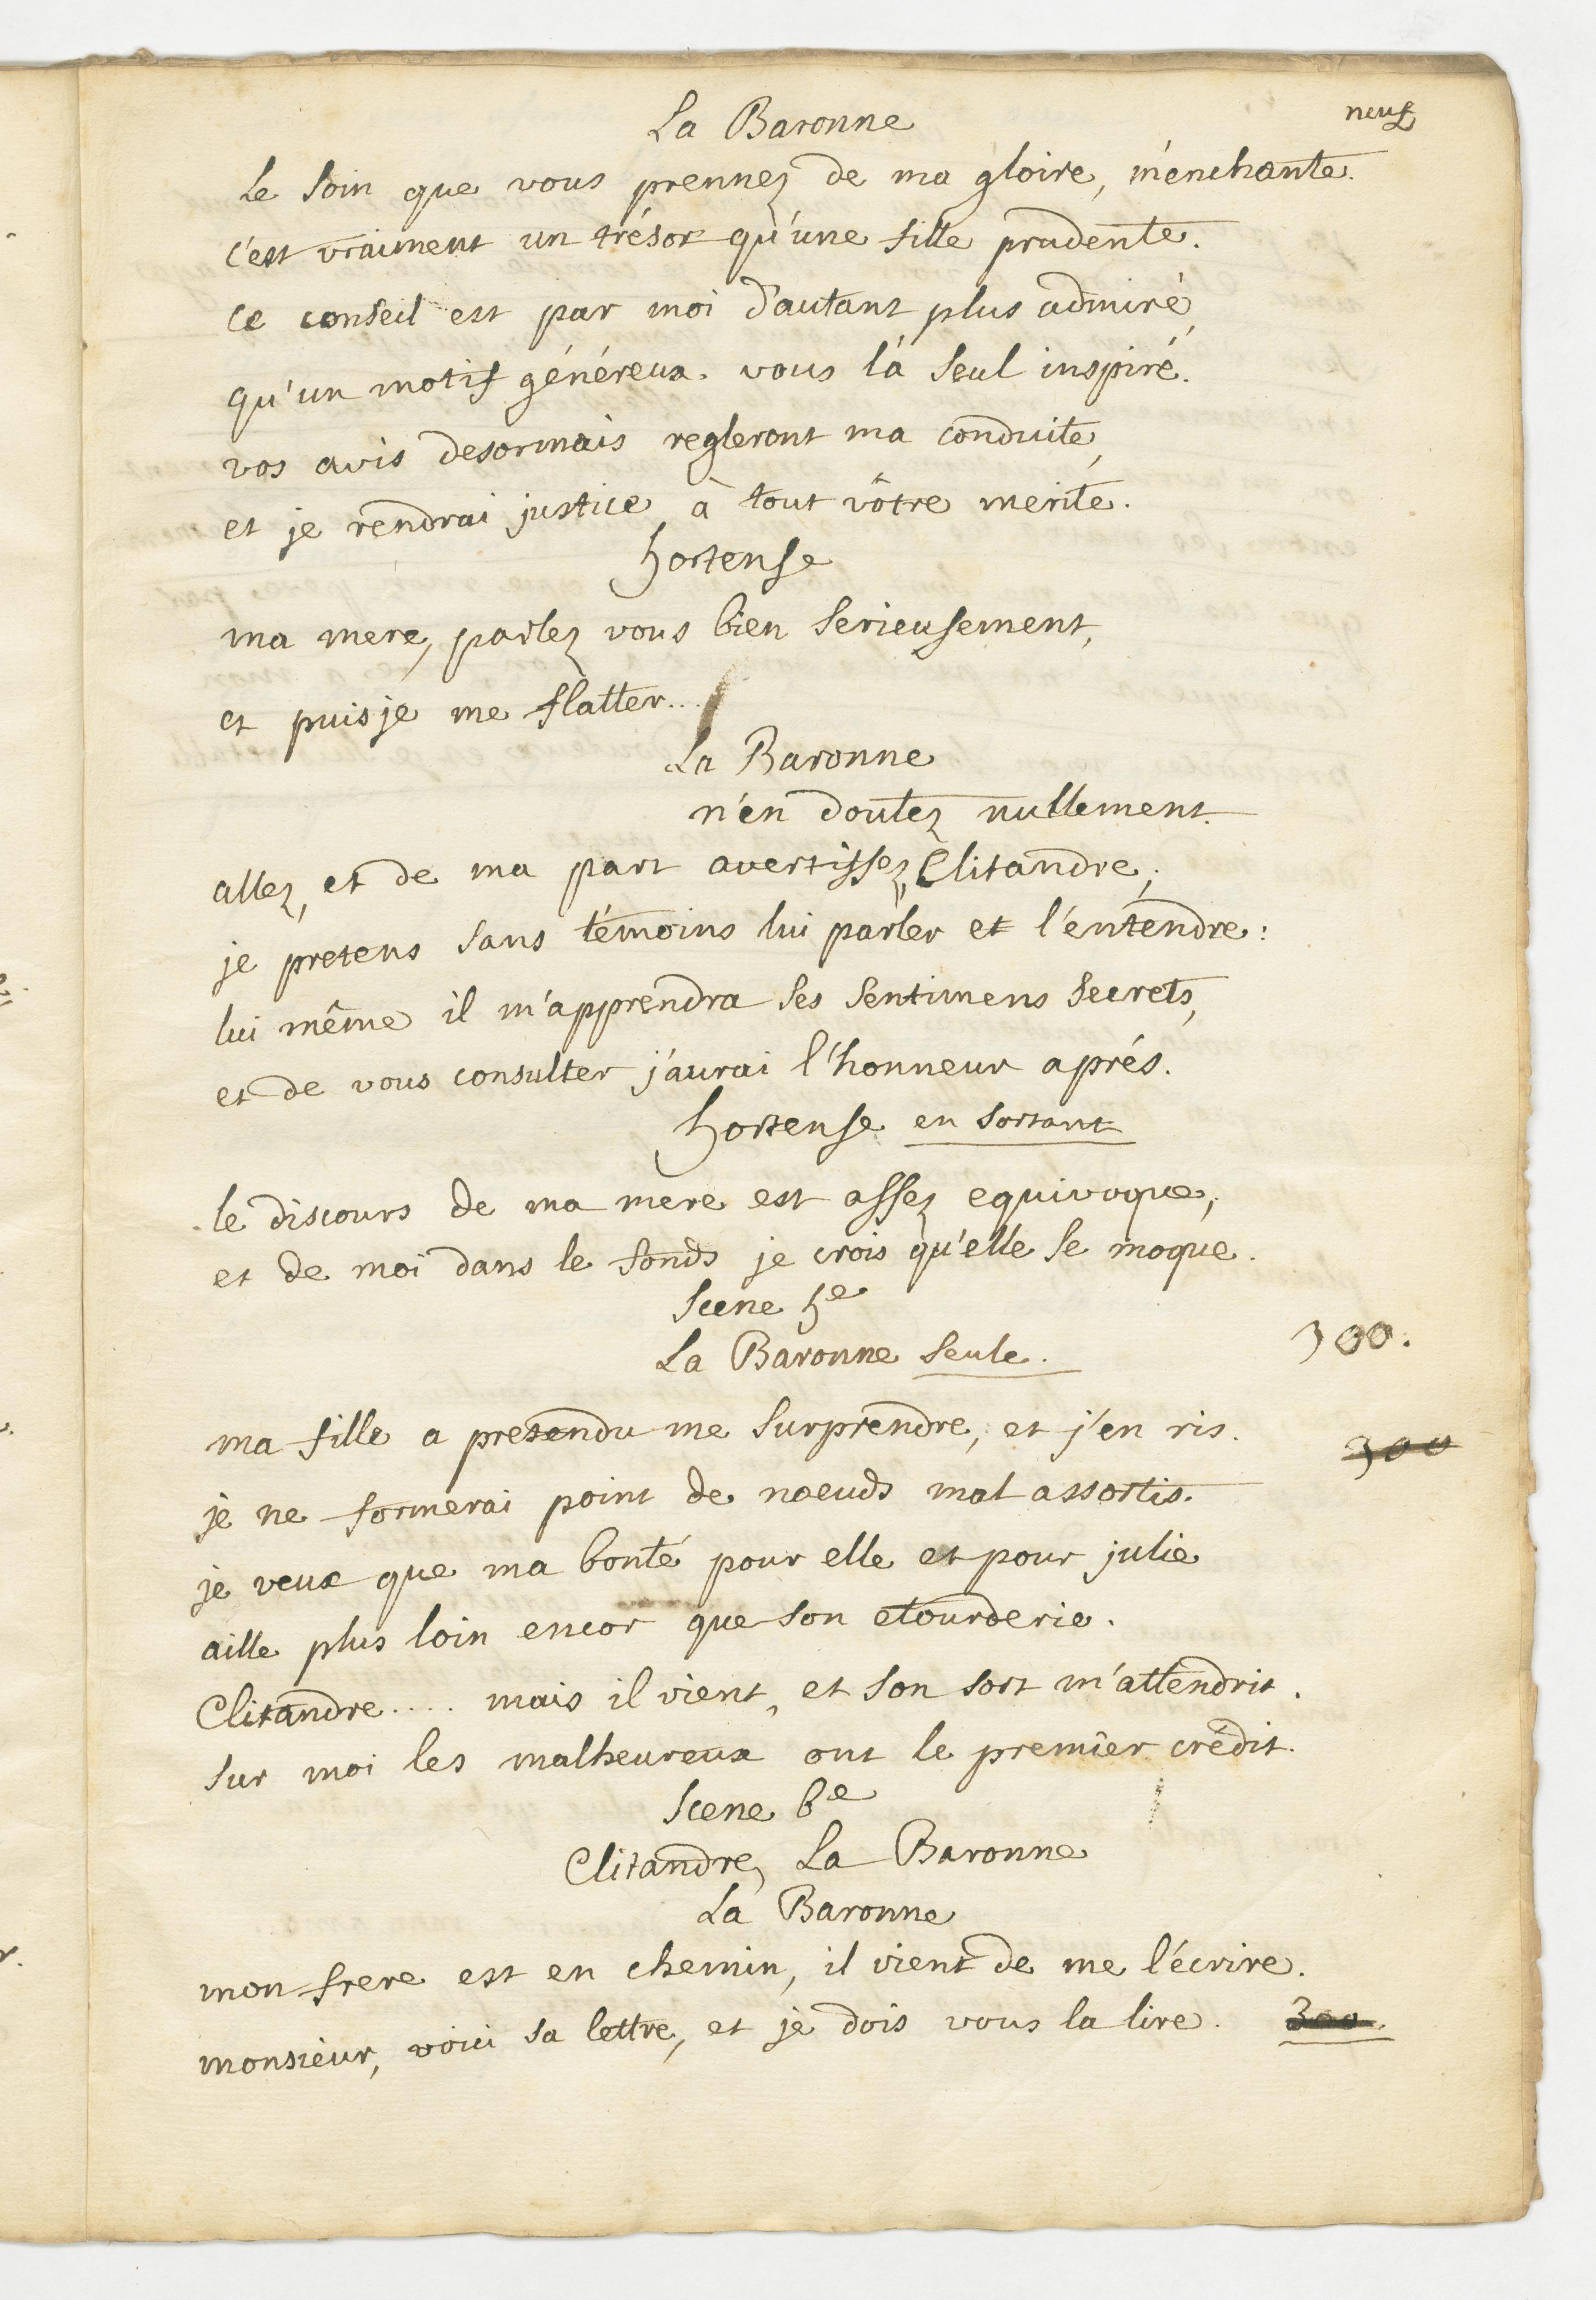 neuf
La Baronne
le soin que vous prennez de ma gloire, m'enchante.
c'est vraiment un trésor qu'une fille prudente.
ce conseil est par moi d'autant plus admiré,
qu'un motif généreux vous l'a seul inspiré.
vos avis desormais regleront ma conduite,
et je rendrai justice à tout vôtre merite.
hortense
ma mere, parlez vous bien serieusement,
et puis je me flatter...
La Baronne
n'en doutez nullement.
allez, et de ma part avertissez Clitandre;
je pretens sans témoins lui parler et l'entendre:
lui même il m'apprendra ses sentimens secrets,
et de vous consulter j'aurai l'honneur aprés.
hortense en sortant
le discours de ma mere est assez equivoque,
et de moi dans le fonds je crois qu'elle se moque.
Scene 5e
La Baronne seule.
300.
ma fille a pretendu me surprendre, et j'en ris.
300
je ne formerai point de noeuds mal assortis.
je veux que ma bonté pour elle et pour julie
aille plus loin encor que son etourderie.
Clitandre.... mais il vient, et son sort m'attendrit.
sur moi les malheureux ont le premier crédit.
Scene 6e
Clitandre, La Baronne
La Baronne
mon frere est en chemin, il vient de me l'écrire.
monsieur, voici sa lettre, et je dois vous la lire. 300.